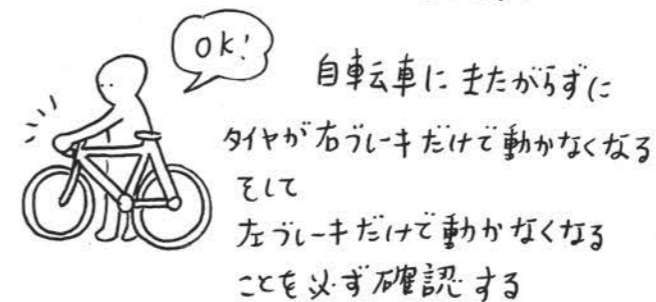 OK!
自転車にまたがらずに
タイヤが右ブレーキだけで動かなくなる
そして
左ブレーキだけで動かなくなる
ことを必ず確認する